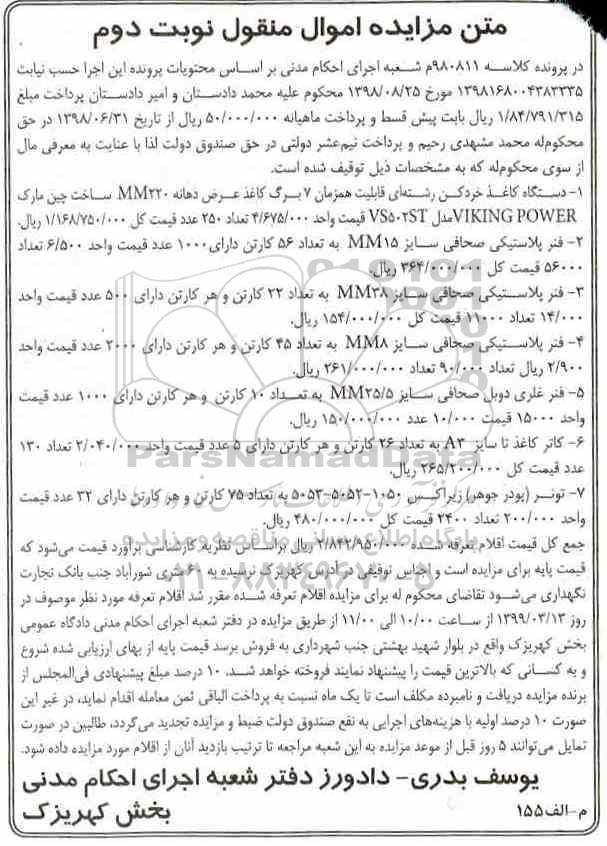 متن مزایده اموال منقول نوبت دوم
در پرونده کلاسه ۹۸۰۸۱۱م شعبه اجرای احکام مدنی بر اساس محتویات پرونده این اجرا حسب نیابت
۱۳۹۸۱۶۸۰۰۴۳۸۲۳۳۵ مورخ ۱۳۹۸/۰۸/۲۵ محکوم علیه محمد دادستان و امیر دادستان پرداخت مبلغ
۱/۸۴/۷۹۱/۳۱۵ ریال بابت پیش قسط و پرداخت ماهیانه ۵۰/۰۰۰/۰۰۰ ریال از تاریخ ۱۳۹۸/۰۶/۳۱ در حق
محکوم‌له محمد مشهدی رحیم و پرداخت نیم‌عشر دولتی در حق صندوق دولت لذا با عنایت به معرفی مال
از سوی محکوم‌له که به مشخصات ذیل توقیف شده است.
۱- دستگاه کاغذ خردکن رشته‌ای قابلیت همزمان ۷ برگ کاغذ عرض دهانه MM۲۲۰ ساخت چین مارک
VIKING POWER مدل VS۵۰۲ST قیمت واحد ۴/۶۷۵/۰۰۰ تعداد ۲۵۰ عدد قیمت کل ۱/۱۶۸/۷۵۰/۰۰۰ ریال.
۲- فنر پلاستیکی صحافی سایز MM۱۵ به تعداد ۵۶ کارتن دارای ۱۰۰۰ عدد قیمت واحد ۶/۵۰۰ تعداد
۵۶۰۰۰ قیمت کل ۳۶۴/۰۰۰/۰۰۰ ریال.
۳- فنر پلاستیکی صحافی سایز MM۳۸ به تعداد ۲۲ کارتن و هر کارتن دارای ۵۰۰ عدد قیمت واحد
۱۴/۰۰۰ تعداد ۱۱۰۰۰ قیمت کل ۱۵۴/۰۰۰/۰۰۰ ریال.
۴- فنر پلاستیکی صحافی سایز MM۸ به تعداد ۴۵ کارتن و هر کارتن دارای ۲۰۰۰ عدد قیمت واحد
۲/۹۰۰ ریال تعداد ۹۰/۰۰۰ تعداد ۲۶۱/۰۰۰/۰۰۰ ریال.
۵- فنر غلری دوبل صحافی سایز MM۲۵/۵ به تعداد ۱۰ کارتن و هر کارتن دارای ۱۰۰۰ عدد قیمت
واحد ۱۵۰۰۰ قیمت ۱۰/۰۰۰ عدد ۱۵۰/۰۰۰/۰۰۰ ریال.
۶- کاتر کاغذ تا سایز A۳ به تعداد ۲۶ کارتن و هر کارتن دارای ۵ عدد قیمت واحد ۲/۰۴۰/۰۰۰ تعداد ۱۳۰
عدد قیمت کل ۲۶۵/۲۰۰/۰۰۰ ریال.
۷- تونر (پودر جوهر) زیراکس ۱۰۵۰-۵۰۵۲-۵۰۵۳ به تعداد ۷۵ کارتن و هر کارتن دارای ۳۲ عدد قیمت
واحد ۲۰۰/۰۰۰ تعداد ۲۴۰۰ قیمت کل ۴۸۰/۰۰۰/۰۰۰ ریال.
جمع کل قیمت اقلام تعرفه شده ۲/۸۴۲/۹۵۰/۰۰۰ ریال براساس نظریه کارشناسی برآورد قیمت می‌شود که
قیمت پایه برای مزایده است و اجناس توقیفی در آدرس کهریزک نرسیده به ۶۰ متری شورآباد جنب بانک تجارت
نگهداری می‌شود تقاضای محکوم له برای مزایده اقلام تعرفه شده مقرر شد اقلام تعرفه مورد نظر موصوف در
روز ۱۳۹۹/۰۳/۱۳ از ساعت ۱۰/۰۰ الی ۱۱/۰۰ از طریق مزایده در دفتر شعبه اجرای احکام مدنی دادگاه عمومی
بخش کهریزک واقع در بلوار شهید بهشتی جنب شهرداری به فروش برسد قیمت پایه از بهای ارزیابی شده شروع
و به کسانی که بالاترین قیمت را پیشنهاد نمایند فروخته خواهد شد. ۱۰ درصد مبلغ پیشنهادی فی‌المجلس از
برنده مزایده دریافت و نامبرده مکلف است تا یک ماه نسبت به پرداخت الباقی ثمن معامله اقدام نماید، در غیر این
صورت ۱۰ درصد اولیه با هزینه‌های اجرایی به نفع صندوق دولت ضبط و مزایده تجدید می‌گردد، طالبین در صورت
تمایل می‌توانند ۵ روز قبل از موعد مزایده به این شعبه مراجعه تا ترتیب بازدید آنان از اقلام مورد مزایده داده شود.
یوسف بدری- دادورز دفتر شعبه اجرای احکام مدنی
بخش کهریزک
م-الف۱۵۵
ParsNamadData
۰۲۱-۸۸۳۴۹۶۷۰-۵